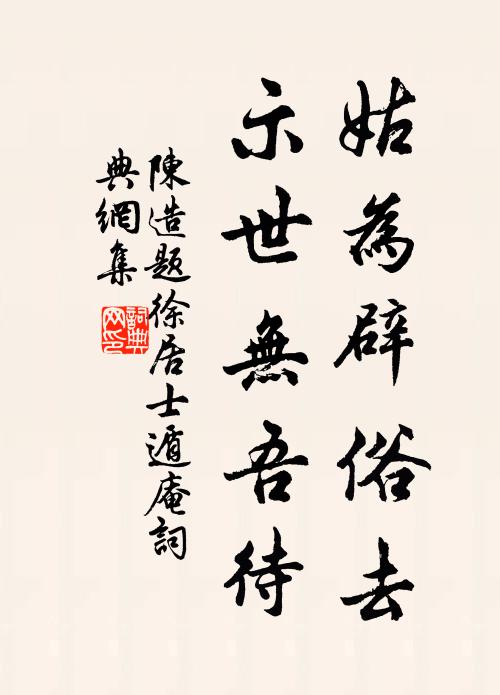 姑為辟俗去
示世無吾待
陳造題徐居士遁庵詞
典網集
詞典网印